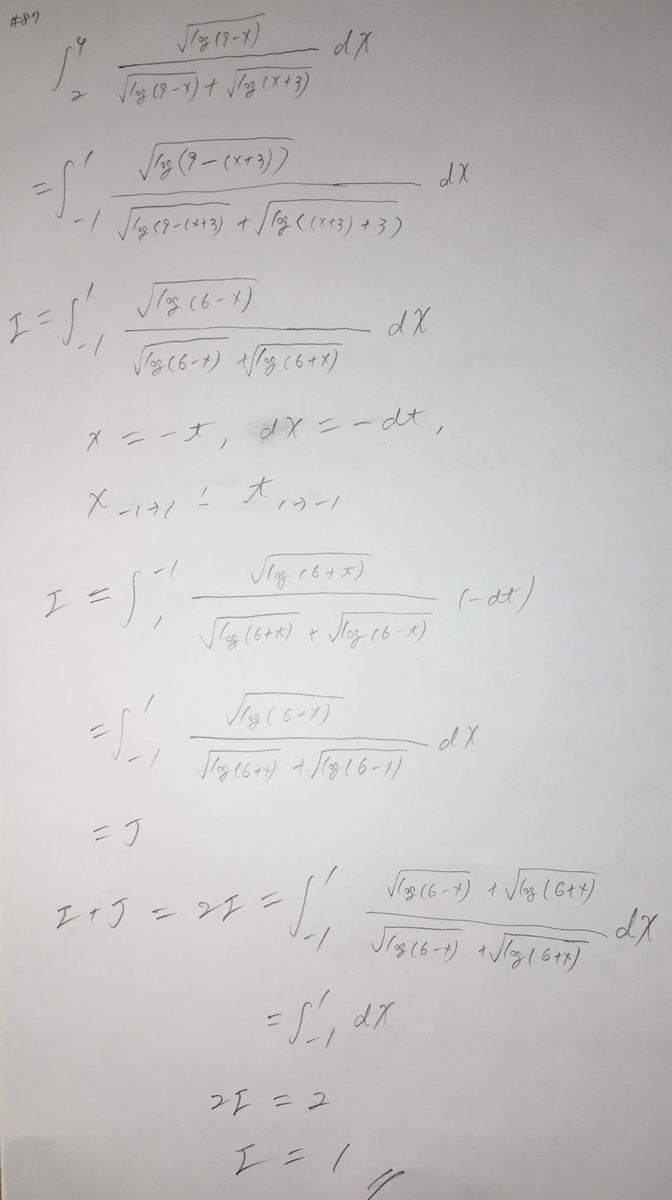 #87
∫₂⁴ √(log(9-x)) / (√(log(9-x)) + √(log(x+3))) dx
= ∫₋₁¹ √(log(9-(x+3))) / (√(log(9-(x+3)) + √(log((x+3)+3)) dx
I = ∫₋₁¹ √(log(6-x)) / (√(log(6-x)) + √(log(6+x))) dx
x = -t, dx = -dt,
x ₋₁→₁ : t ₁→₋₁
I = ∫₁⁻¹ √(log(6+t)) / (√(log(6+t)) + √(log(6-t))) (-dt)
= ∫₋₁¹ √(log(6+x)) / (√(log(6+x)) + √(log(6-x))) dx
= J
I + J = 2I = ∫₋₁¹ (√(log(6-x)) + √(log(6+x))) / (√(log(6-x)) + √(log(6+x))) dx
= ∫₋₁¹ dx
2I = 2
I = 1 //